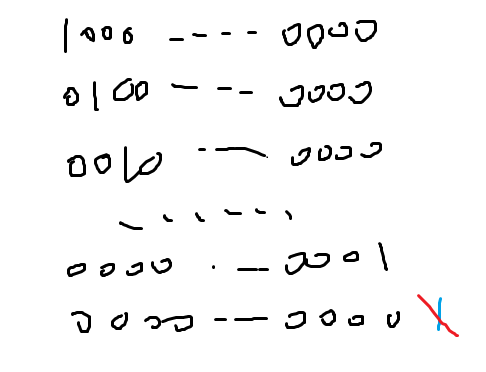 1000 ---- 0000
0100 --- 0000
0010 --- 0000
------
0000 . -- 0001
0000 --- 0000